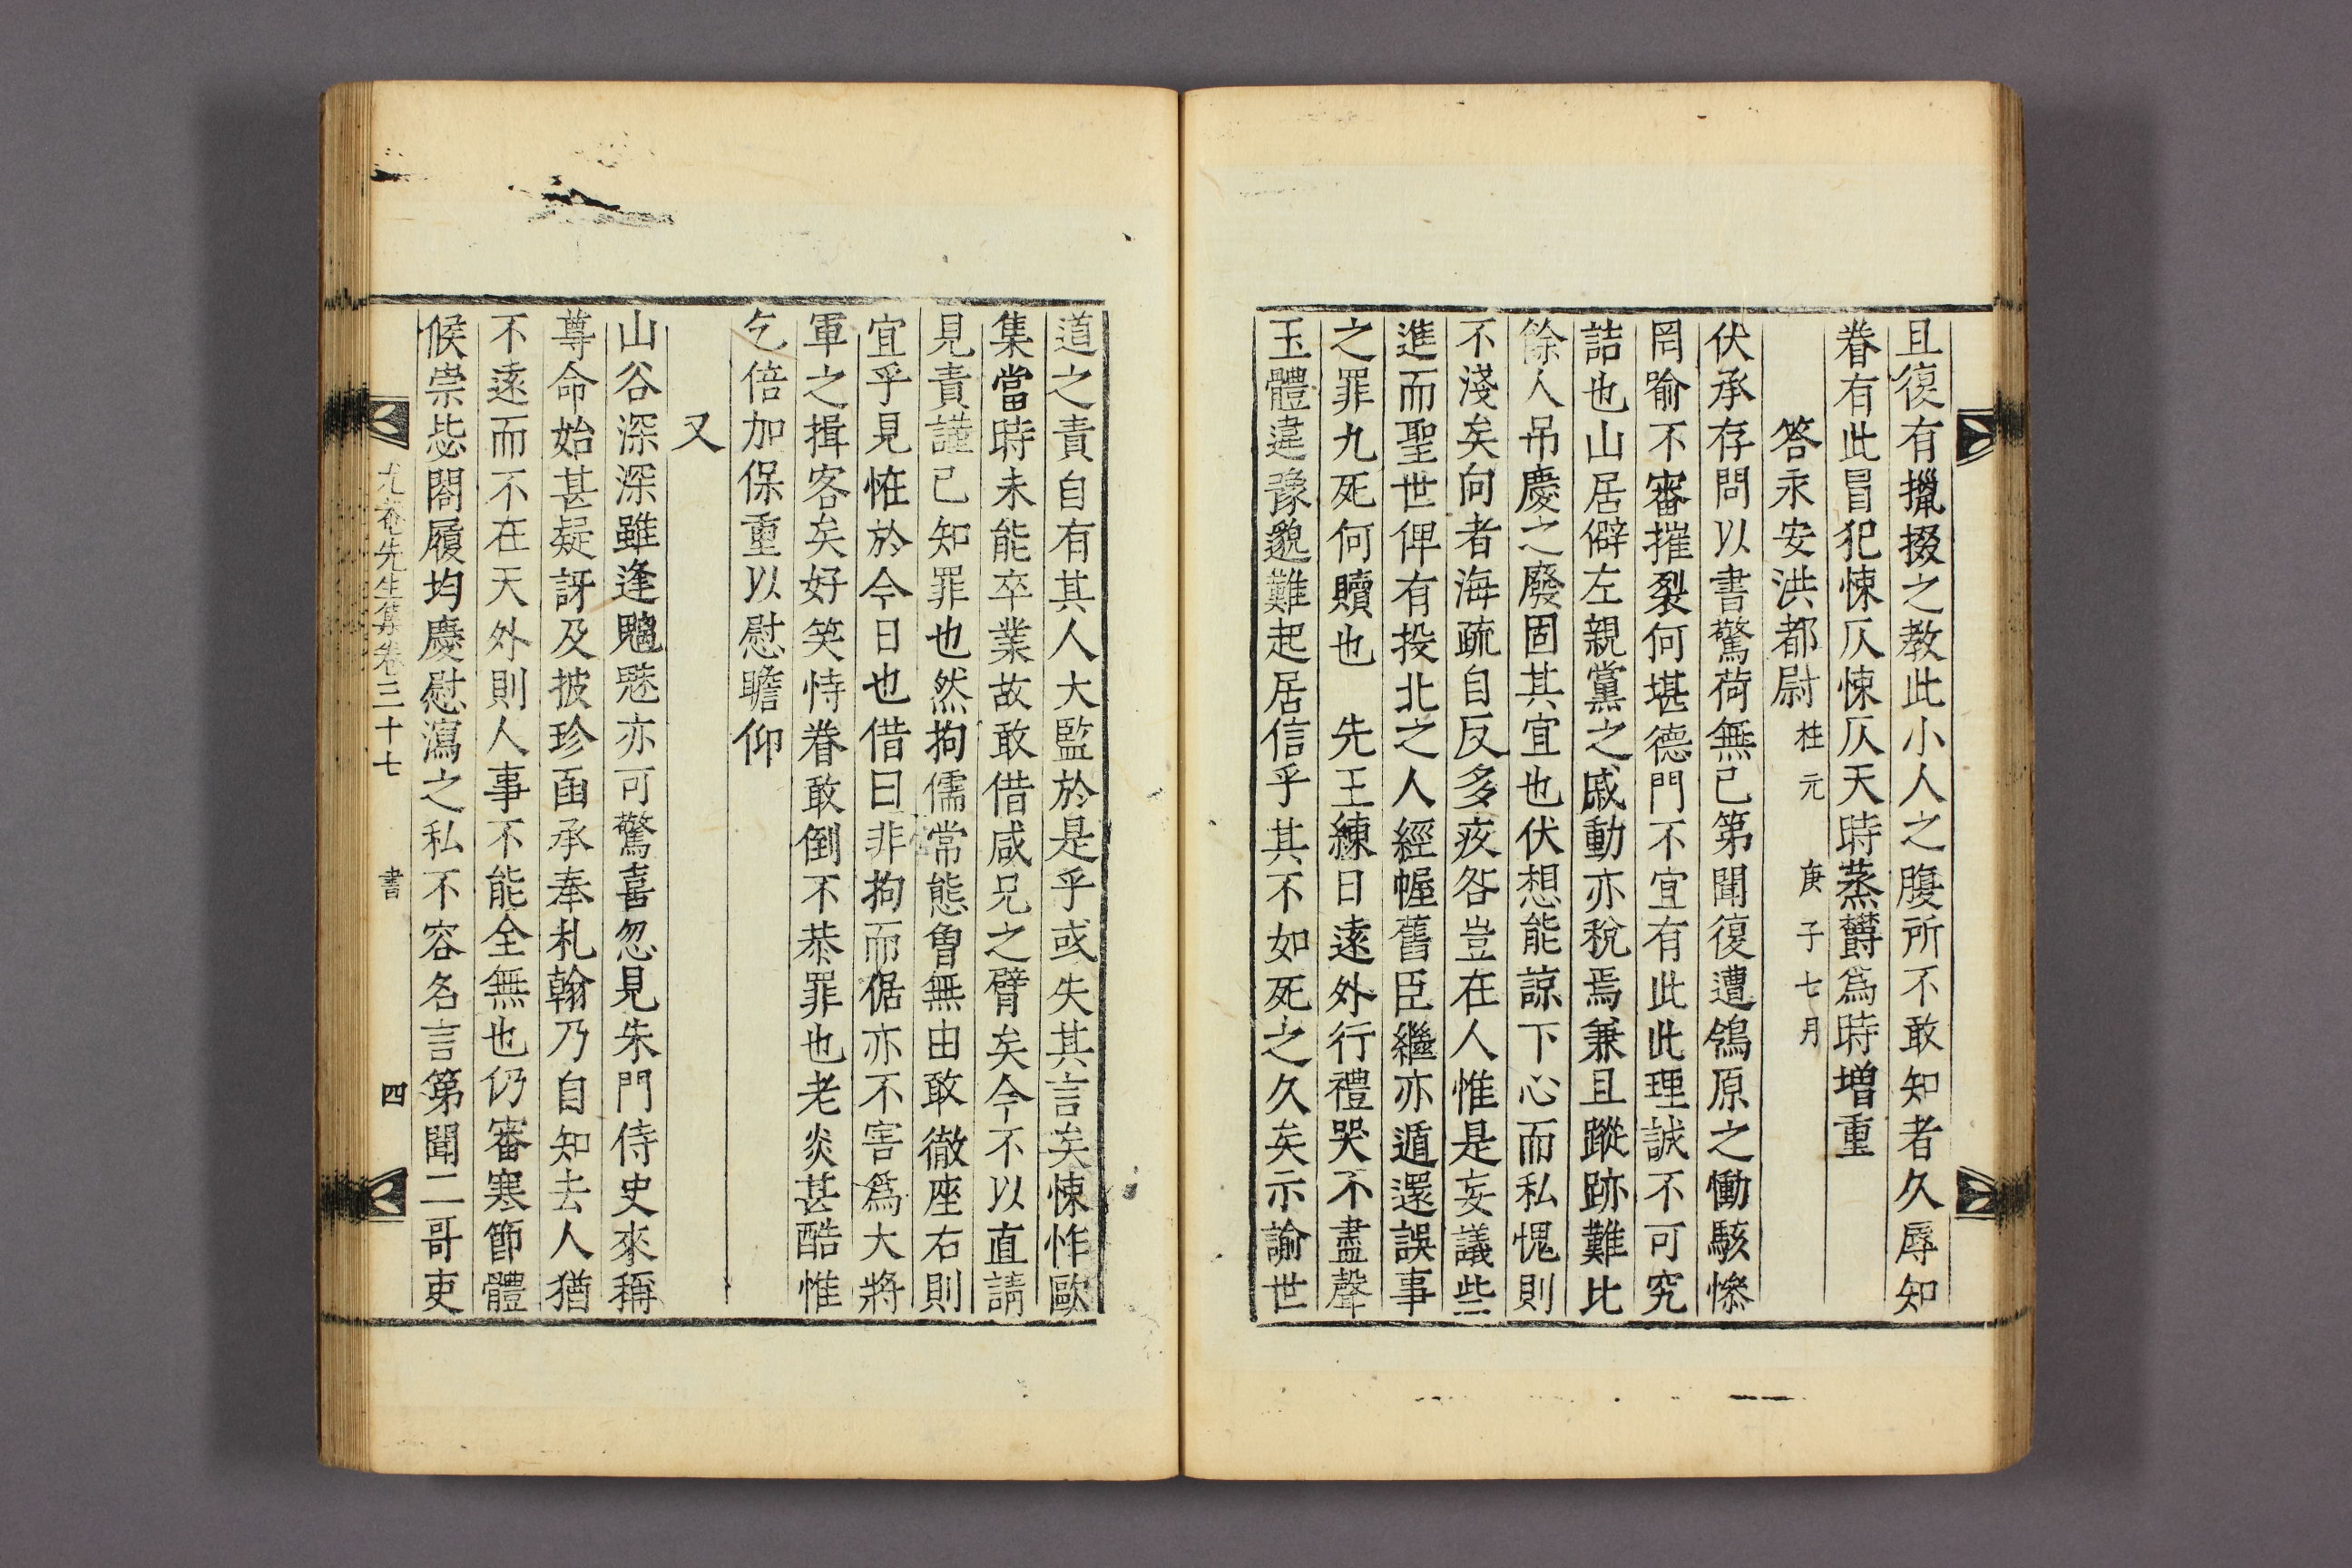 且復有擸掇之教此小人之腹所不敢知者久辱知
眷有此冒犯悚仄悚仄天時蒸欝爲時增重
答永安洪都尉柱元 庚子七月
伏承存問以書驚荷無已第聞復遭鴒原之慟駭慘
罔喩不審摧裂何堪德門不宜有此此理誠不可究
詰也山居僻左親黨之戚動亦稅焉兼且蹤跡難比
餘人吊慶之廢固其宜也伏想能諒下心而私愧則
不淺矣向者海疏自反多疚咎豈在人惟是妄議些
進而聖世俾有投北之人經幄舊臣繼亦遁還誤事
之罪九死何贖也 先王練日遠外行禮哭不盡聲
玉體違豫邈難起居信乎其不如死之久矣示諭世
道之責自有其人大監於是乎或失其言矣悚怍歐
集當時未能卒業故敢借咸兄之臂矣今不以直請
見責謹已知罪也然拘儒常態魯無由敢徹座右則
宜乎見恠於今日也借曰非拘而倨亦不害爲大將
軍之揖客矣好笑恃眷敢倒不恭罪也老炎甚酷惟
乞倍加保重以慰瞻仰
又
山谷深深雖逢魍魎亦可驚喜忽見朱門侍史來稱
尊命始甚疑訝及披珍函承奉札翰乃自知去人猶
不遠而不在天外則人事不能全無也仍審寒節體
候崇毖閤履均慶慰瀉之私不容名言第聞二哥吏
尤菴先生集卷三十七 書 四